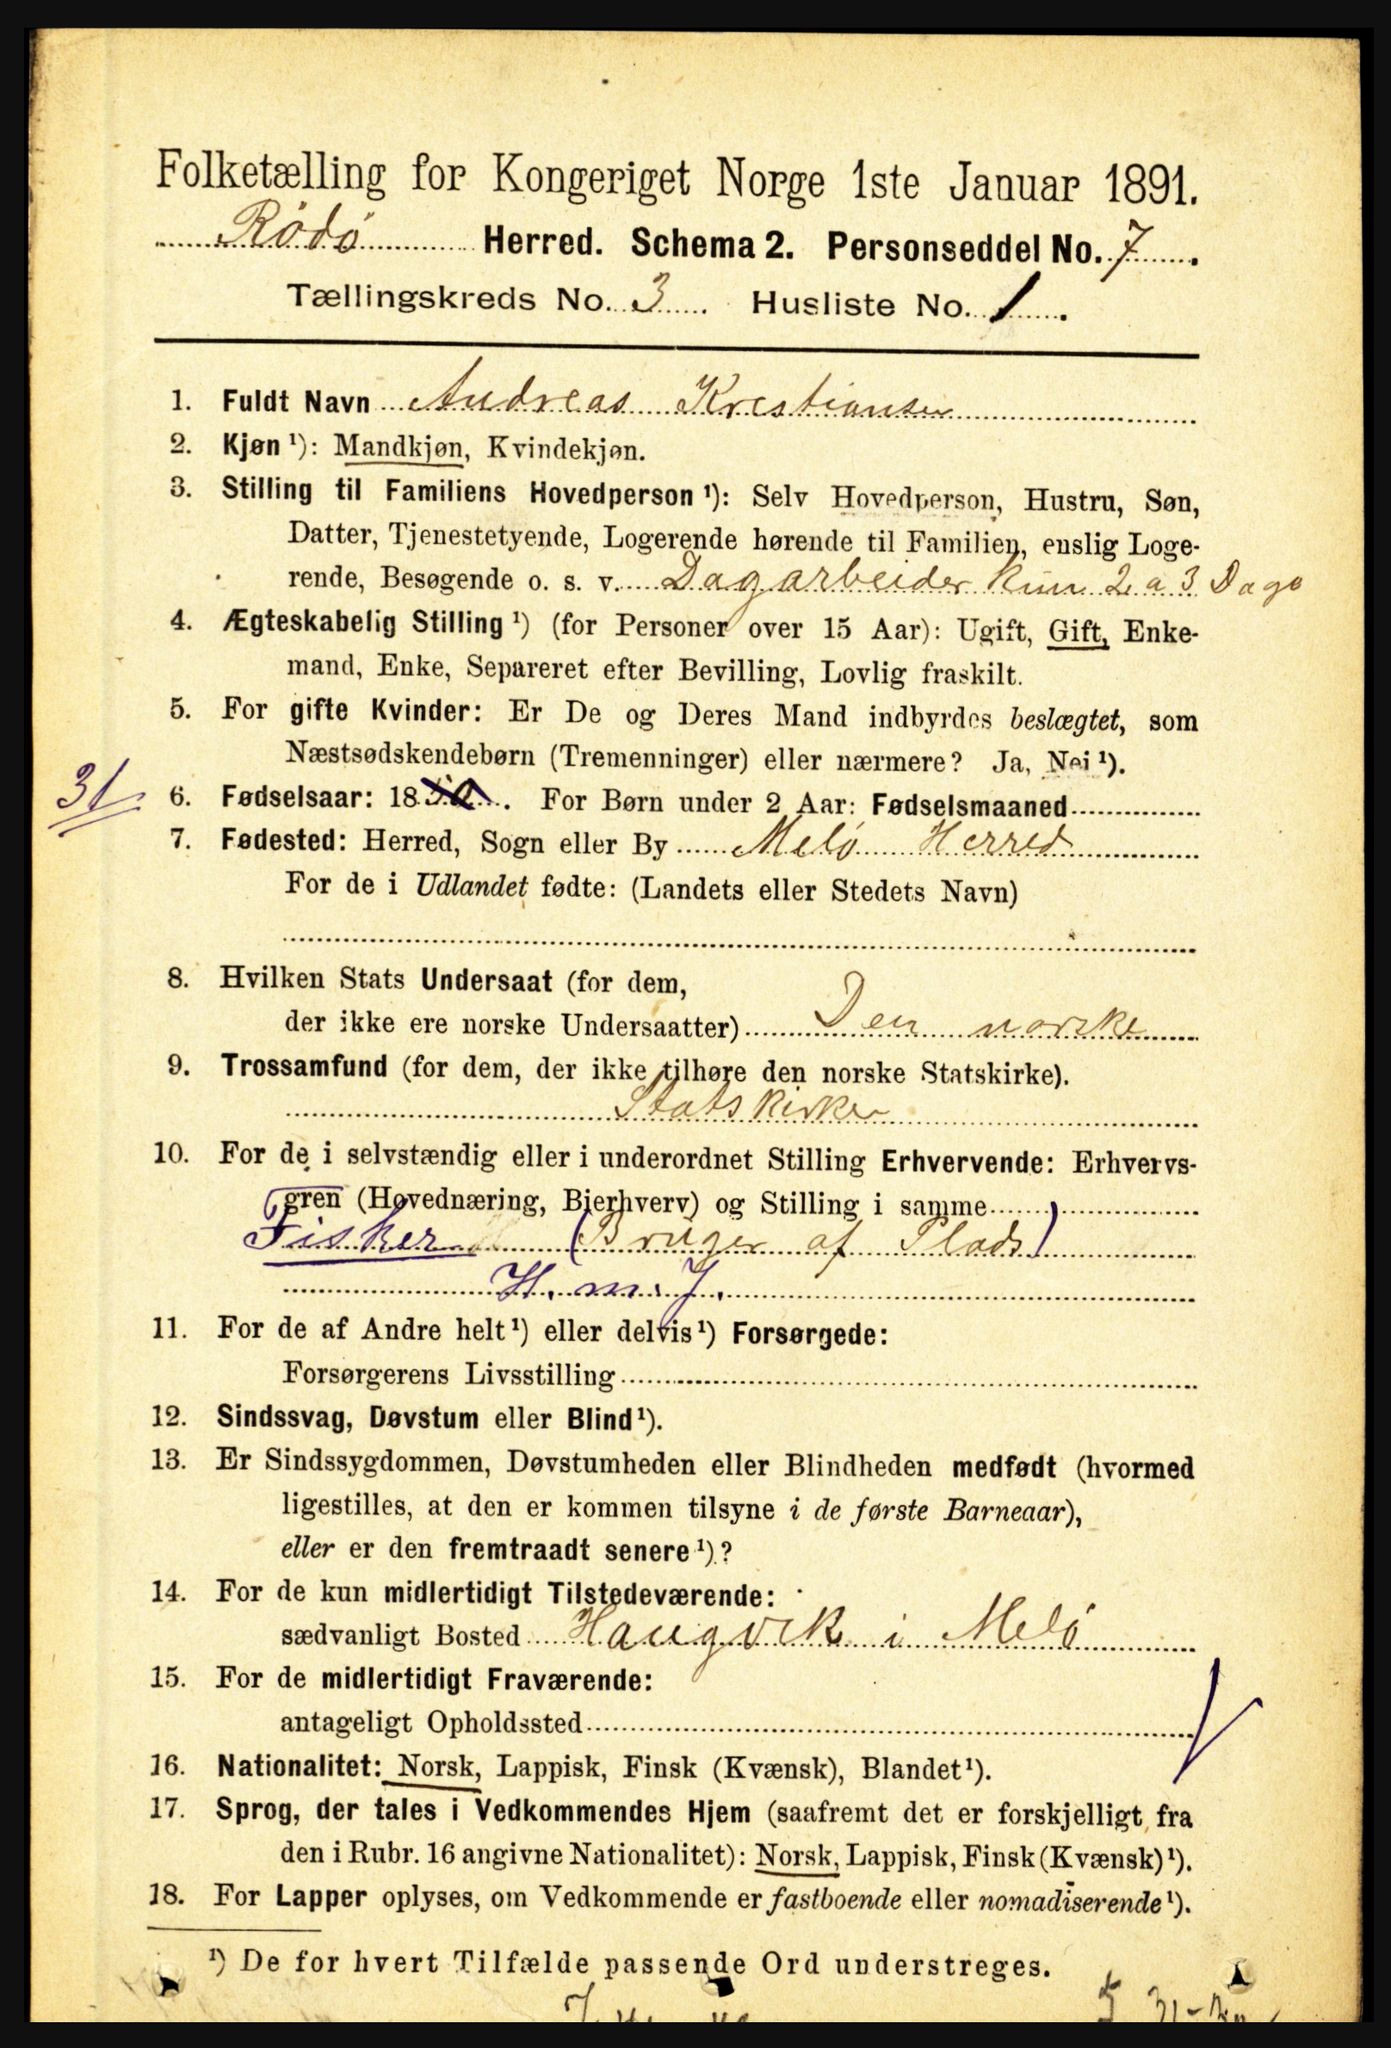 Folketælling for Kongeriget Norge 1ste Januar 1891.
Rödö Herred. Schema 2. Personseddel No. 7.
Tællingskreds No. 3. Husliste No. 1.
1. Fuldt Navn Andreas Kristiansen
2. Kjøn ¹): Mandkjøn, Kvindekjøn.
3. Stilling til Familiens Hovedperson ¹): Selv Hovedperson, Hustru, Søn,
Datter, Tjenestetyende, Logerende hørende til Familien, enslig Loge-
rende, Besøgende o. s. v. Dagarbeider kun 2 a 3 Dage
4. Ægteskabelig Stilling ¹) (for Personer over 15 Aar): Ugift, Gift, Enke-
mand, Enke, Separeret efter Bevilling, Lovlig fraskilt.
5. For gifte Kvinder: Er De og Deres Mand indbyrdes beslægtet, som
Næstsødskendebørn (Tremenninger) eller nærmere? Ja, Nei ¹).
31
6. Fødselsaar: 18 . For Børn under 2 Aar: Fødselsmaaned
7. Fødested: Herred, Sogn eller By Melö Herred
For de i Udlandet fødte: (Landets eller Stedets Navn)
8. Hvilken Stats Undersaat (for dem,
der ikke ere norske Undersaatter) Den norske
9. Trossamfund (for dem, der ikke tilhøre den norske Statskirke).
Statskirken
10. For de i selvstændig eller i underordnet Stilling Erhvervende: Erhvervs-
gren (Hovednæring, Bierhverv) og Stilling i samme
Fisker (Bruger af Plads)
H. m. J.
11. For de af Andre helt ¹) eller delvis ¹) Forsørgede:
Forsørgerens Livsstilling
12. Sindssvag, Døvstum eller Blind ¹).
13. Er Sindssygdommen, Døvstumheden eller Blindheden medfødt (hvormed
ligestilles, at den er kommen tilsyne i de første Barneaar),
eller er den fremtraadt senere ¹)?
14. For de kun midlertidigt Tilstedeværende:
sædvanligt Bosted Haugvik i Melö
15. For de midlertidigt Fraværende:
antageligt Opholdssted
16. Nationalitet: Norsk, Lappisk, Finsk (Kvænsk), Blandet ¹).
17. Sprog, der tales i Vedkommendes Hjem (saafremt det er forskjelligt fra
den i Rubr. 16 angivne Nationalitet): Norsk, Lappisk, Finsk (Kvænsk) ¹).
18. For Lapper oplyses, om Vedkommende er fastboende eller nomadiserende ¹).
¹) De for hvert Tilfælde passende Ord understreges.